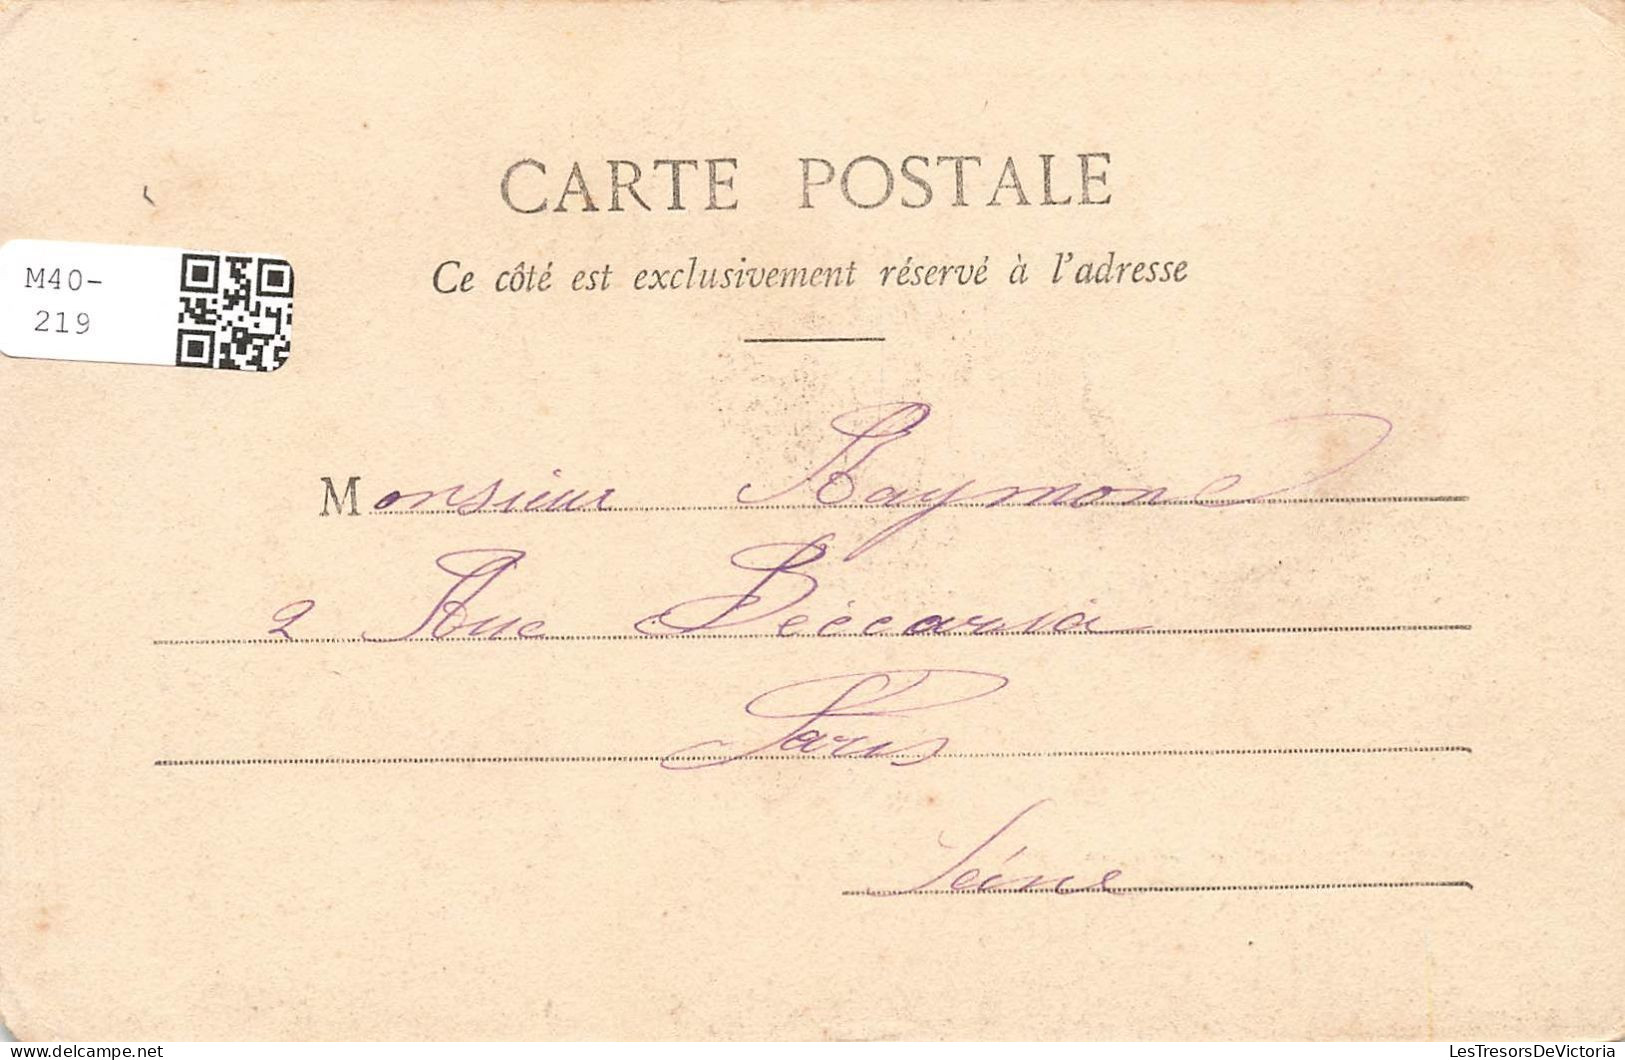 CARTE POSTALE
Ce côté est exclusivement réservé à l'adresse
M40-
219
Monsieur Raymond
2 Rue Béccaria
Paris
Seine
LesTresorsDeVictoria